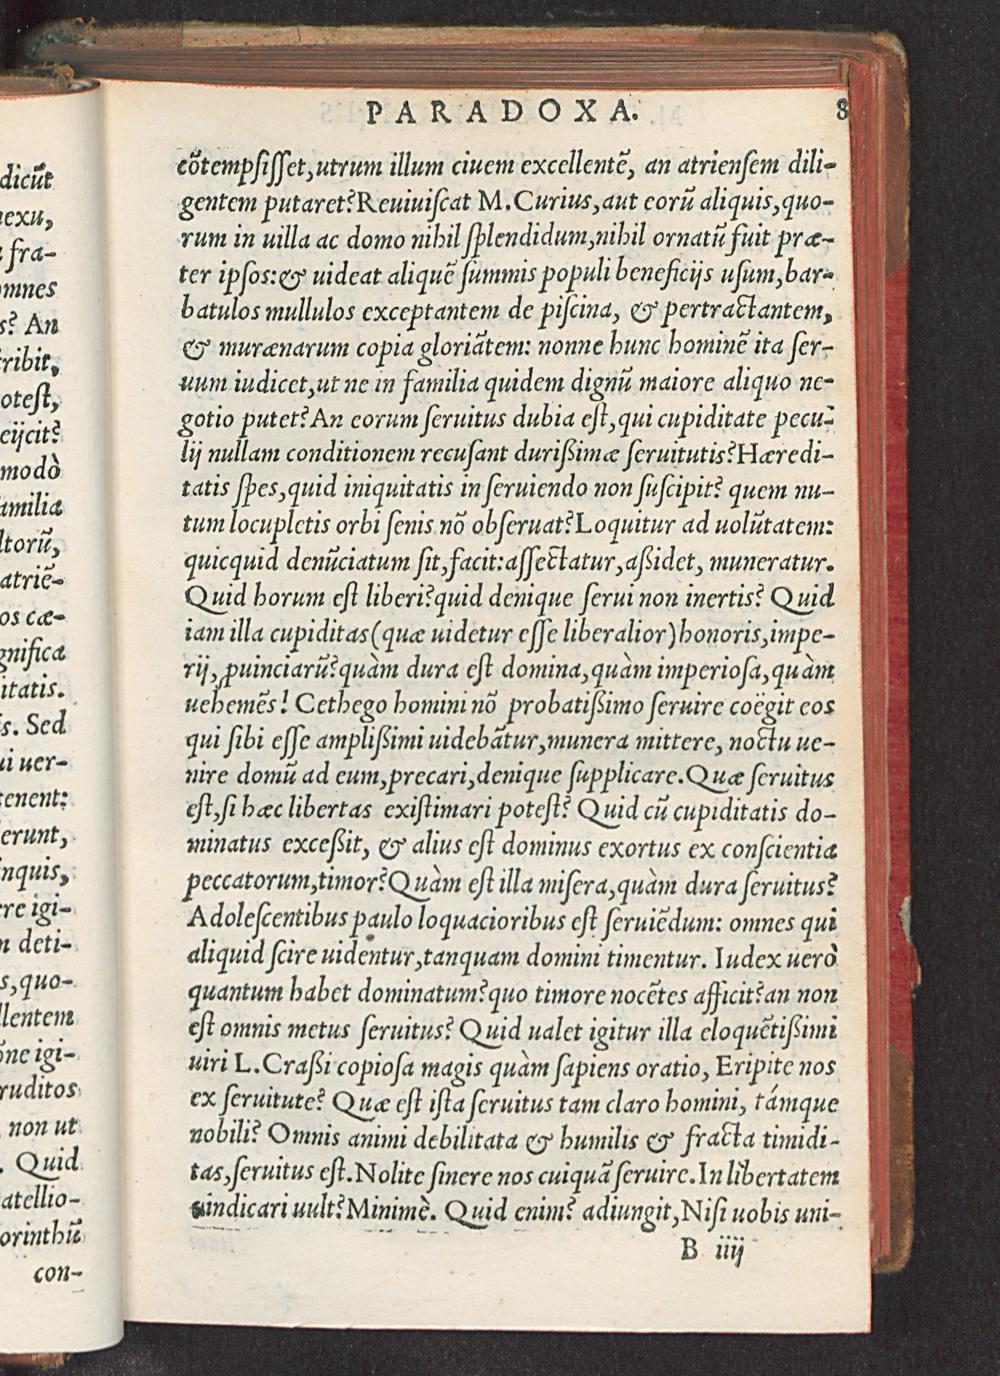 dicũt
nexu,
fra-
omnes
s? An
tribit,
otest,
eijcit?
modò
amilia
ltorũ,
atriē-
os cæ-
gnifica
itatis.
s. Sed
ui uer-
tenent:
erunt,
inquis,
re igi-
deti-
s, quo-
llentem
õne igi-
ruditos
non ut
. Quid
atellio-
orinthũ
con-
PARADOXA. 8
cõtempsisset, utrum illum ciuem excellentẽ, an atriensem dili-
gentem putaret? Reuiuiscat M. Curius, aut eorũ aliquis, quo-
rum in uilla ac domo nihil splendidum, nihil ornatũ fuit præ-
ter ipsos: & uideat aliquẽ summis populi beneficijs usum, bar-
batulos mullulos exceptantem de piscina, & pertractantem,
& murænarum copia gloriãtem: nonne hunc hominẽ ita ser-
uum iudicet, ut ne in familia quidem dignũ maiore aliquo ne-
gotio putet? An eorum seruitus dubia est, qui cupiditate pecu-
lij nullam conditionem recusant durißimæ seruitutis? Hæredi-
tatis spes, quid iniquitatis in seruiendo non suscipit? quem nu-
tum locupletis orbi senis nõ obseruat? Loquitur ad uolũtatem:
quicquid denũciatum sit, facit: assectatur, aßidet, muneratur.
Quid horum est liberi? quid denique serui non inertis? Quid
iam illa cupiditas (quæ uidetur esse liberalior) honoris, impe-
rij, ꝓuinciarũ? quàm dura est domina, quàm imperiosa, quàm
uehemẽs! Cethego homini nõ probatißimo seruire coëgit eos
qui sibi esse amplißimi uidebãtur, munera mittere, noctu ue-
nire domũ ad eum, precari, denique supplicare. Quæ seruitus
est, si hæc libertas existimari potest? Quid cũ cupiditatis do-
minatus exceßit, & alius est dominus exortus ex conscientia
peccatorum, timor? Quàm est illa misera, quàm dura seruitus?
Adolescentibus paulo loquacioribus est seruiẽdum: omnes qui
aliquid scire uidentur, tanquam domini timentur. Iudex uerò
quantum habet dominatum? quo timore nocẽtes afficit? an non
est omnis metus seruitus? Quid ualet igitur illa eloquẽtißimi
uiri L. Craßi copiosa magis quàm sapiens oratio, Eripite nos
ex seruitute? Quæ est ista seruitus tam claro homini, támque
nobili? Omnis animi debilitata & humilis & fracta timidi-
tas, seruitus est. Nolite sinere nos cuiquã seruire. In libertatem
uindicari uult? Minimè. Quid enim? adiungit, Nisi uobis uni-
B iiij